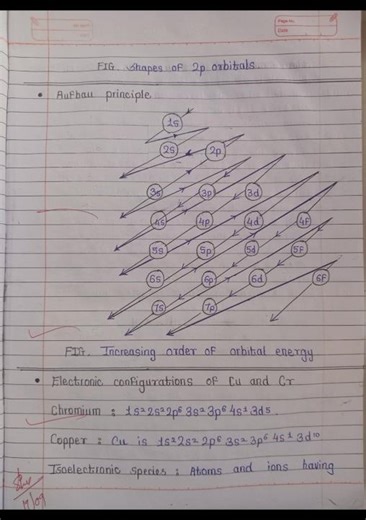 FIG. Shapes of 2p orbitals.
• Aufbau principle
1s
2s 2p
3s 3p 3d
4s 4p 4d 4f
5s 5p 5d 5f
6s 6p 6d 6f
7s 7p
FIG. Increasing order of orbital energy
• Electronic configurations of Cu and Cr
Chromium : 1s² 2s² 2p⁶ 3s² 3p⁶ 4s¹ 3d⁵.
Copper : Cu is 1s² 2s² 2p⁶ 3s² 3p⁶ 4s¹ 3d¹⁰
Isoelectronic species : Atoms and ions having